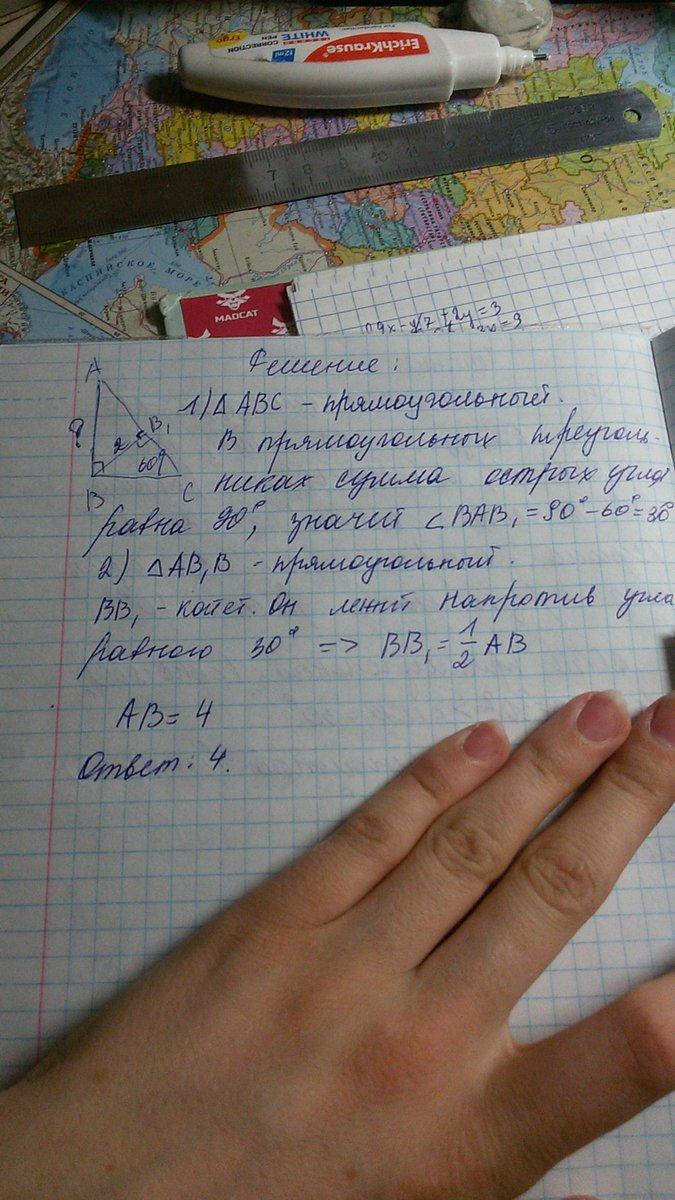 ErichKrause
CORRECTION
WHITE PEN
Ergo
12 ml
7 8 9 10 11
КАСПИЙСКОЕ МОРЕ
MADCAT
Решение:
A
1) △ ABC – прямоугольный.
?
2
B₁
60°
B
C
В прямоугольных треуголь-
никах сумма острых углов
равна 90°, значит ∠ BAB₁ = 90° – 60° = 30°
2) △ AB₁B – прямоугольный.
BB₁ – катет. Он лежит напротив угла
равного 30° => BB₁ = 1/2 AB
AB = 4
Ответ: 4.